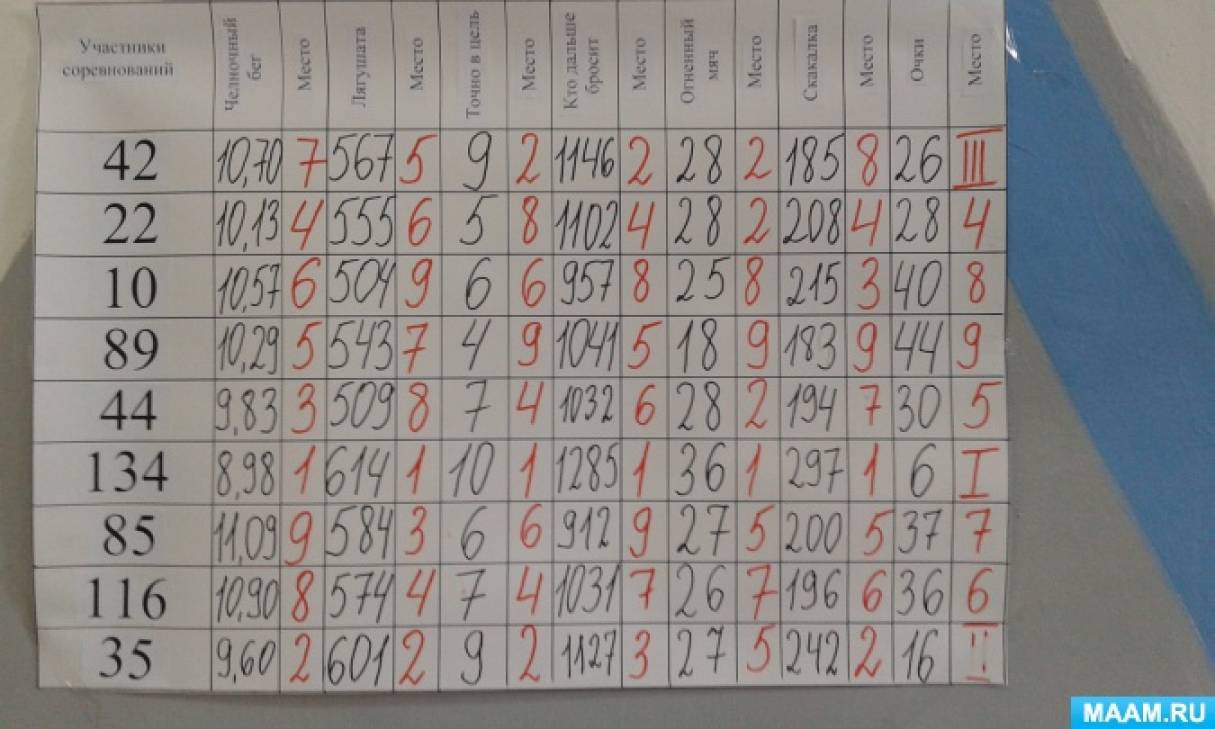 Участники соревнований Челночный бег Место Лягушата Место Точно в цель Место Кто дальше бросит Место Огненный мяч Место Скакалка Место Очки Место
42 10,70 7 567 5 9 2 1146 2 28 2 185 8 26 III
22 10,13 4 555 6 5 8 1102 4 28 2 208 4 28 4
10 10,57 6 504 9 6 6 957 8 25 8 215 3 40 8
89 10,29 5 543 7 4 9 1041 5 18 9 183 9 44 9
44 9,83 3 509 8 7 4 1032 6 28 2 194 7 30 5
134 8,98 1 614 1 10 1 1285 1 36 1 297 1 6 I
85 11,09 9 584 3 6 6 912 9 27 5 200 5 37 7
116 10,90 8 574 4 7 4 1031 7 26 7 196 6 36 6
35 9,60 2 601 2 9 2 1127 3 27 5 242 2 16 II
MAAM.RU